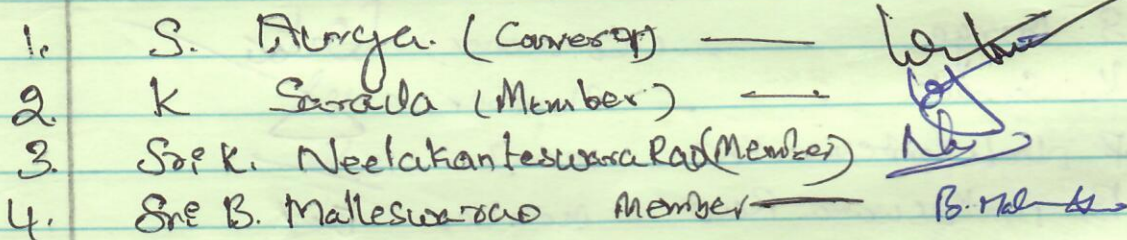 1. S. Durga. (Convenor) —
2. K Sarada (Member) —
3. Sri K. Neelakanteswara Rao (Member)
4. Sri B. Malleswarao Member —